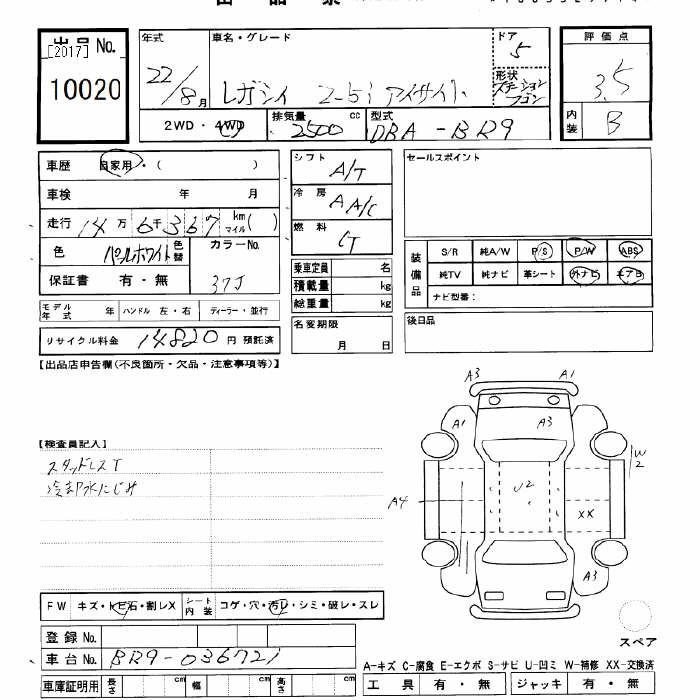 出品票
出品 No.
[2017]
10020
年式
22/8月
車名・グレード
レガシィ 2-5i アイサイト
ドア
5
形状
ステーションワゴン
評価点
3.5
内装
B
2WD・4WD
排気量
2500 cc
型式
DBA-BR9
車歴 自家用・( )
車検 年 月
走行 14万6千367 km マイル( )
色 パールホワイト 色替
カラーNo.
37J
保証書 有・無
モデル年式 年 ハンドル 左・右 ディーラー・並行
リサイクル料金 14820 円 預託済
シフト
A/T
冷房
A A/C
燃料
乗車定員 名
積載量 kg
総重量 kg
名変期限
月 日
セールスポイント
装備品
S/R 純A/W P/S P/W ABS
純TV 純ナビ 革シート 外ナビ エアB
ナビ型番:
後日品
【出品店申告欄(不良箇所・欠品・注意事項等)】
【検査員記入】
スタッドレスT
冷却水にじみ
A3 A1
A1 A3
W2
U2
A4
XX
A3
スペア
FW キズ・トビ石・割レX
シート内装 コゲ・穴・汚レ・シミ・破レ・スレ
登録 No.
車台 No. BR9-036721
車庫証明用 長さ cm 幅 cm 高さ cm
A-キズ C-腐食 E-エクボ S-サビ U-凹ミ W-補修 XX-交換済
工具 有・無 ジャッキ 有・無